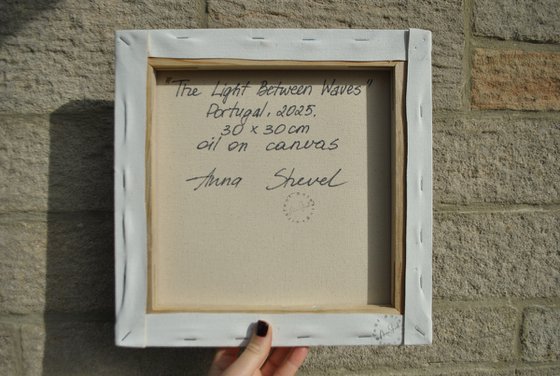 "The Light Between Waves"
Portugal, 2025.
30 x 30 cm
oil on canvas
Anna Shevel